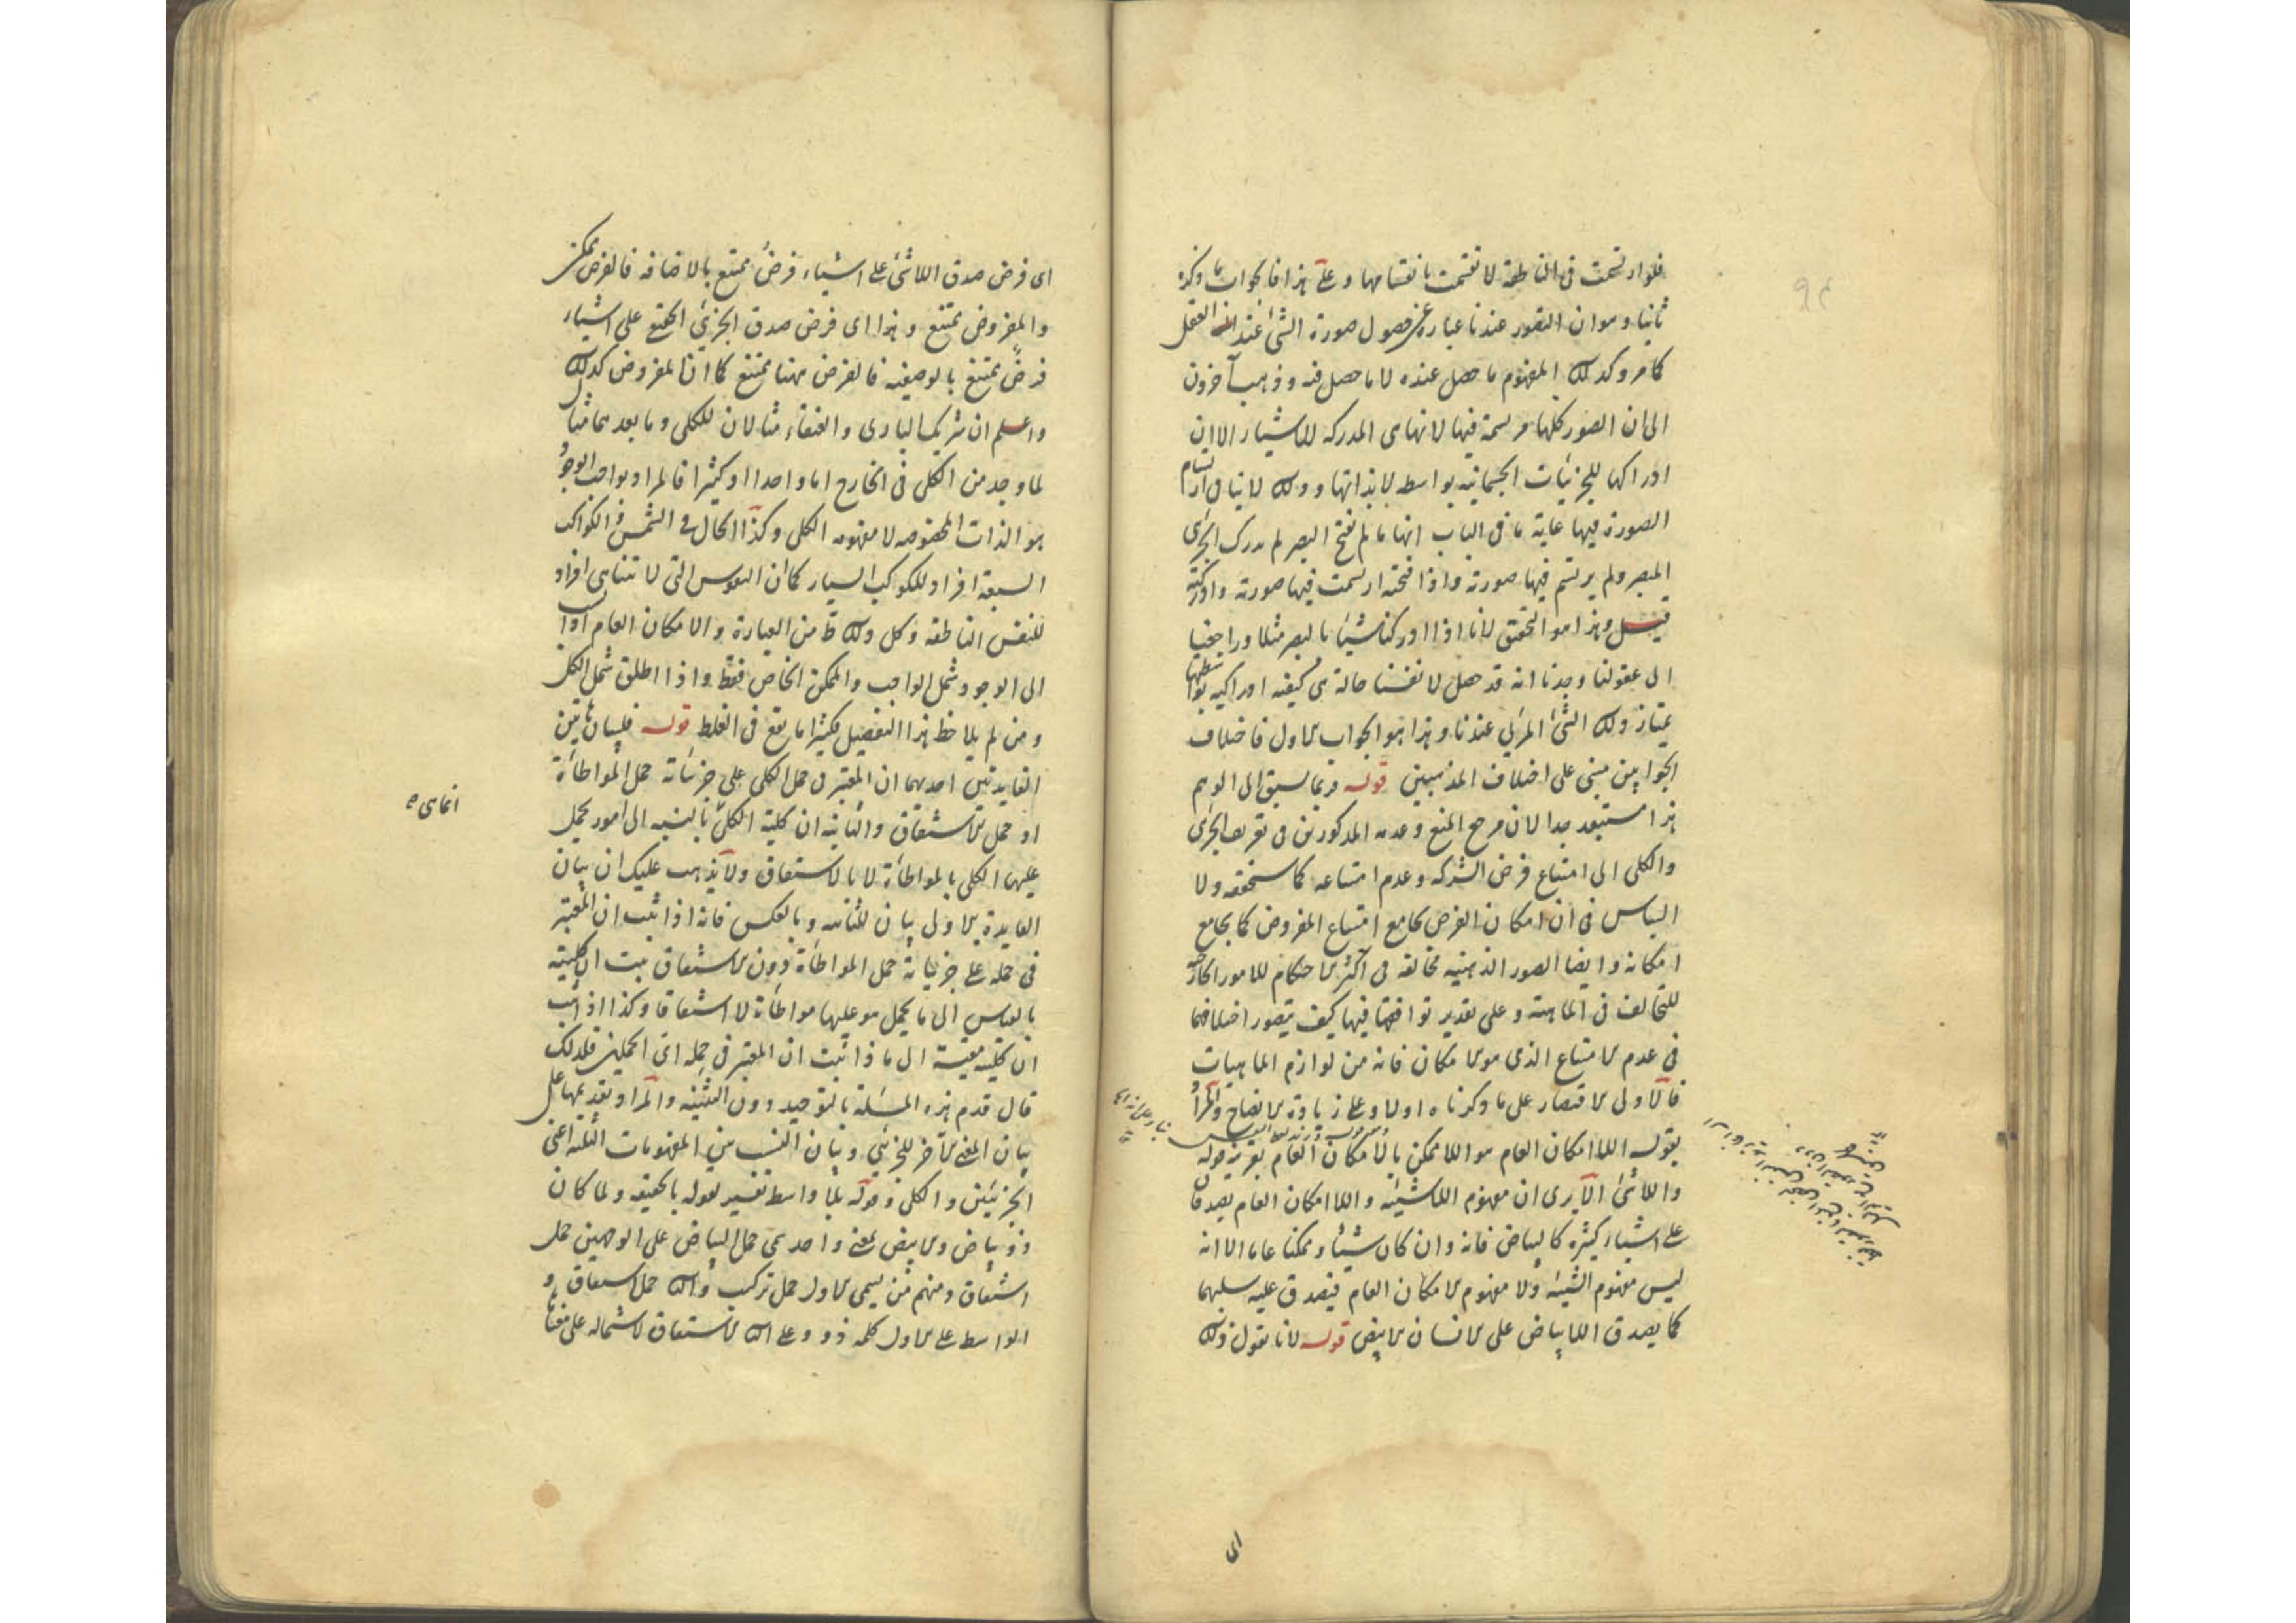 فلو ارتسمت فى الناطقة لانقسمت بانقسامها وعلى هذا فالجواب ما ذكره
ثانيا وهو ان التصور عندنا عبارة عن حصول صورة الشئ عند العقل
كما مر وكذلك المفهوم ما حصل عنده لا ما حصل فيه وذهب آخرون
الى ان الصور كلها مرتسمة فيها لانها هى المدركة للاشياء الا ان
ادراكها للجزئيات الجسمانية بواسطة لا بذاتها وذلك لا ينافى ارتسام
الصورة فيها غاية ما فى الباب انها ما لم تفتح البصر لم تدرك الجزئى
المبصر ولم يرتسم فيها صورته واذا فتحته ارتسمت فيها صورته وادركته
قيل وهذا هو التحقيق لانا اذا ادركنا شيئا بالبصر مثلا وراجعنا
الى عقولنا وجدنا انه قد حصل لانفسنا حالة هى كيفية ادراكية بواسطتها
يمتاز ذلك الشئ المرئى عندنا وهذا هو الجواب الاول فاختلاف
الجوابين مبنى على اختلاف المذهبين قوله فربما يسبق الى الوهم
هذا مستبعد جدا لان مرجع المنع وعدمه المذكورين فى تعريف الجزئى
والكلى الى امتناع فرض الشركة وعدم امتناعه كما ستحققه ولا
التباس فى ان امكان الفرض يجامع امتناع المفروض كما يجامع
امكانه وايضا الصور الذهنية مخالفة فى اكثر الاحكام للامور الخارجية
للتخالف فى الماهية وعلى تقدير توافقها فيها كيف يتصور اختلافهما
فى عدم الامتناع الذى هو الامكان فانه من لوازم الماهيات
فالاولى الاقتصار على ما ذكرناه اولا وعلى زيادة الايضاح والمراد
بقوله اللاامكان العام هو اللاممكن بالامكان العام بقرينة قوله
واللاشئ الا يرى ان مفهوم اللاشيئية واللاامكان العام يصدقان
على اشياء كثيرة كالبياض فانه وان كان شيئا وممكنا عاما الا انه
ليس مفهوم الشيئية ولا مفهوم الامكان العام فيصدق عليه سلبهما
كما يصدق اللابياض على الانسان الابيض قوله لانا نقول ذلك
اى
اى فرض صدق اللاشئ على اشياء فرضُ ممتنع بالاضافة فالفرض ممكن
والمفروض ممتنع وهذا اى فرض صدق الجزئى الحقيقى على اشياء
فرضٌ ممتنع بالوصفية فالفرض ههنا ممتنع كما ان المفروض كذلك
واعلم ان شريك البارى والعنقاء مثالان للكلى وما بعدهما مثال
لما وجد من الكلى فى الخارج اما واحدا او كثيرا فالمراد بواجب الوجود
هو الذات المخصوصة لا مفهومه الكلى وكذا الحال فى الشمس والكواكب
السبعة افراد للكوكب السيار كما ان النفوس التى لا تتناهى افراد
للنفس الناطقة وكل ذلك ظ من العبارة والامكان العام اذا نسب
الى الوجود شمل الواجب والممكن الخاص فقط واذا اطلق شمل الكل
ومن لم يلاحظ هذا التفصيل فكثيرا ما يقع فى الغلط قوله فلبيان هاتين
الفايدتين احديهما ان المعتبر فى حمل الكلى على جزئياته حمل المواطأة
او حمل الاشتقاق والثانية ان كلية الكلى بالنسبة الى امور يحمل
عليها الكلى بالمواطأة لا بالاشتقاق ولا يذهب عليك ان بيان
الفايدة الاولى بيان للثانية وبالعكس فانه اذا ثبت ان المعتبر
فى حمله على جزئياته حمل المواطاة دون الاشتقاق ثبت ان كليته
بالقياس الى ما يحمل هو عليها مواطأة لا اشتقاقا وكذا اذا ثبت
ان كليته مقيسة الى ماذا ثبت ان المعتبر فى حمله اى الحملين فلذلك
قال قدم هذه المسئلة بالتوحيد دون التثنية والمراد تقديمها على
بيان المعنى الآخر للجزئى وبيان النسب بين المفهومات الثلثة اعنى
الجزئيين والكلى وقوله بلا واسطة تفسير لقوله بالحقيقة ولما كان
ذو بياض والابيض بمعنى واحد سمى حمل البياض على الوجهين حمل
اشتقاق ومنهم من يسمى الاول حمل تركيب والثانى حمل اشتقاق و
الواسطة على الاول كلمة ذو وعلى الثانى الاشتقاق لاشتماله على معناها
انما هى